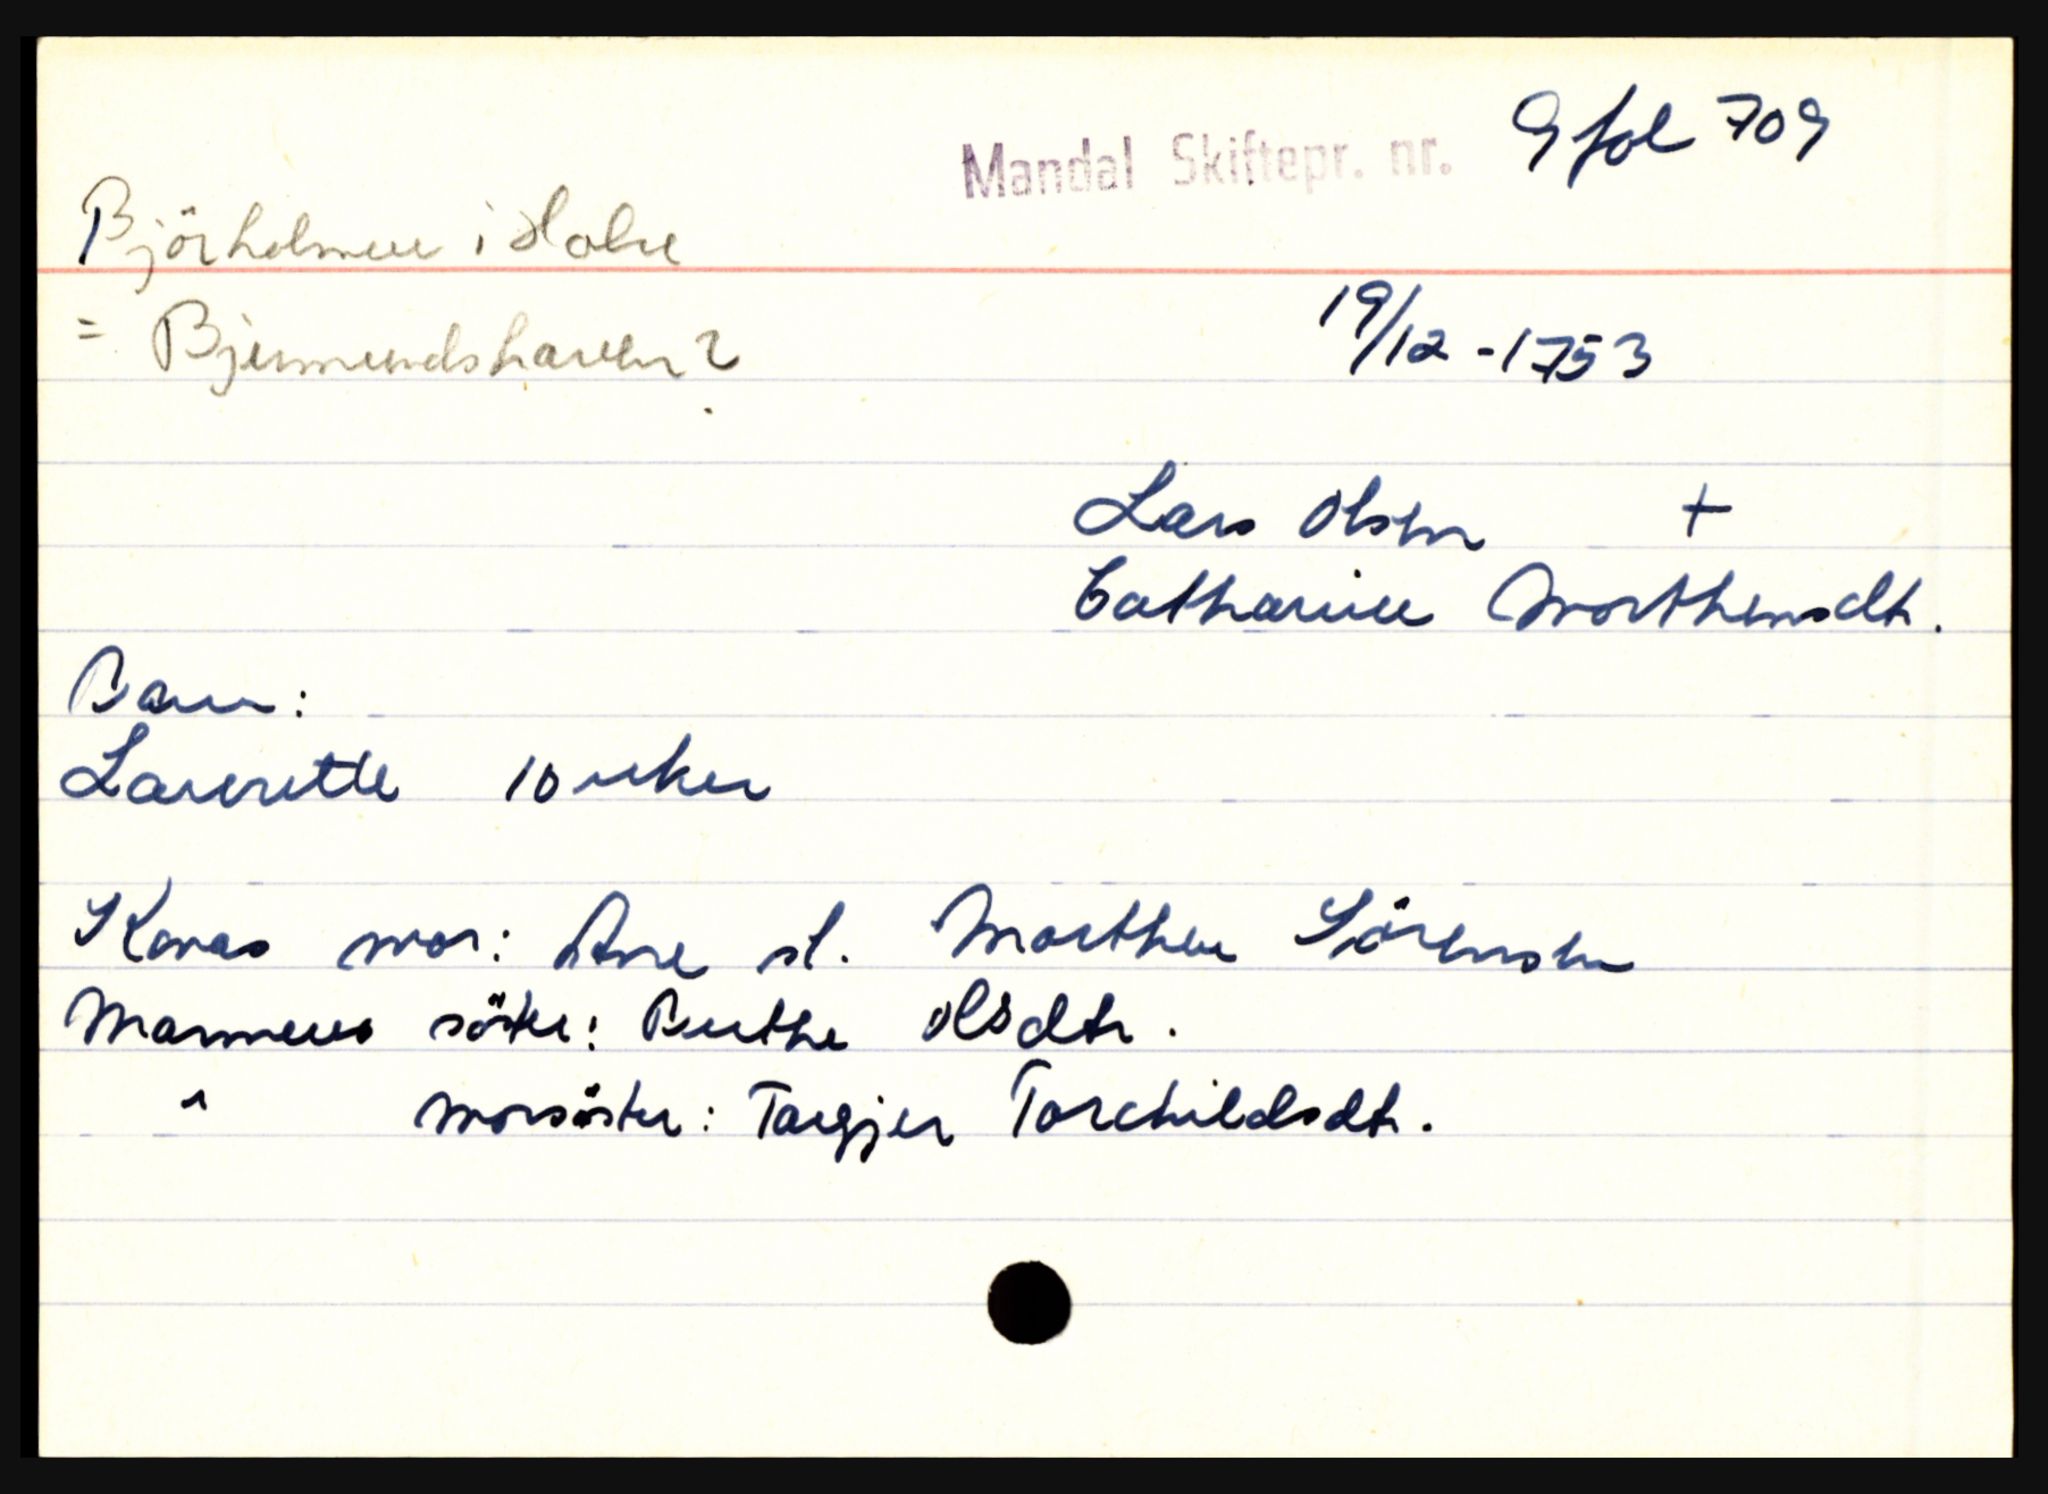 Mandal Skiftepr. nr. 9 fol 709
Björholmen i Holve
= Bjermundshaven?
19/12 - 1753
Lars Olsen +
Catharine Morthensdtr.
Barn:
Laverette 10 uker
Konas mor: Ane sl. Morthen Sörensen
Mannens söster: Berthe Olsdtr.
" morsöster: Targjer Torchildsdtr.